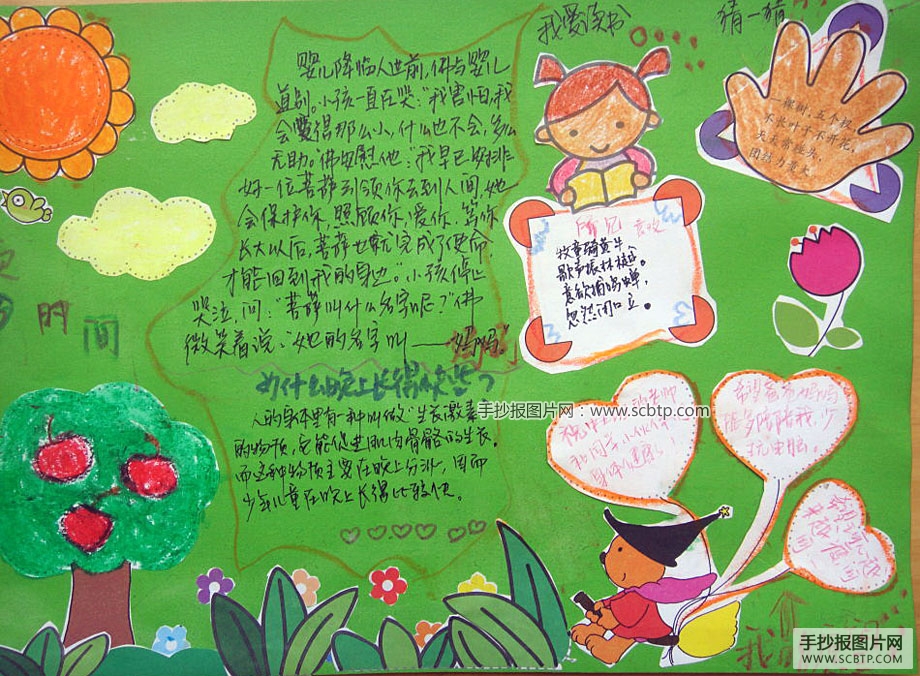 我爱读书
猜一猜
婴儿降临人世前,佛与婴儿
道别。小孩一直在哭:"我害怕,我
会变得那么小,什么也不会,多么
无助。"佛安慰他:"我早已安排
好一位菩萨到领你去到人间,她
会保护你,照顾你,爱你,等你
长大以后,菩萨也就完成了使命
才能回到我的身边。"小孩停止
哭泣,问:"菩萨叫什么名字呢?"佛
微笑着说:"她的名字叫——妈妈"
一棵树,五个杈,
不长叶子不开花,
天天常在
团结力量大
所见
袁枚
牧童骑黄牛,
歌声振林樾。
意欲捕鸣蝉,
忽然闭口立。
间
为什么晚上长得快些?
人的身体里有一种叫做"生长激素"
的物质,它能促进肌肉骨骼的生长。
而这种物质主要在晚上分泌,因而
少年儿童在晚上长得比较快。
手抄报图片网:www.scbtp.com
老师
和同学小伙伴
身体健康!
希望爸爸妈妈
能多陪陪我,少
玩电脑。
我
手抄报图片网
WWW.SCBTP.COM